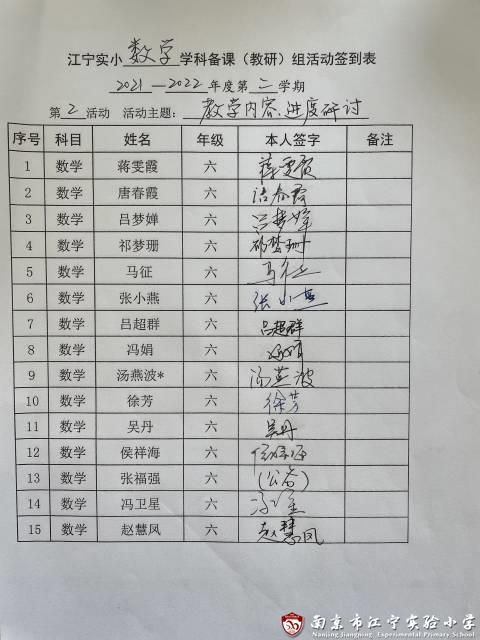 江宁实小 数学 学科备课（教研）组活动签到表
2021—2022 年度第 二 学期
第 2 活动 活动主题： 教学内容、进度研讨
序号 科目 姓名 年级 本人签字 备注
1 数学 蒋雯霞 六 蒋雯霞
2 数学 唐春霞 六 唐春霞
3 数学 吕梦婵 六 吕梦婵
4 数学 祁梦珊 六 祁梦珊
5 数学 马征 六 马征
6 数学 张小燕 六 张小燕
7 数学 吕超群 六 吕超群
8 数学 冯娟 六 冯娟
9 数学 汤燕波* 六 汤燕波
10 数学 徐芳 六 徐芳
11 数学 吴丹 六 吴丹
12 数学 侯祥海 六
13 数学 张福强 六 （公差）
14 数学 冯卫星 六
15 数学 赵慧凤 六 赵慧凤
南京市江宁实验小学
Nanjing Jiangning Experimental Primary School